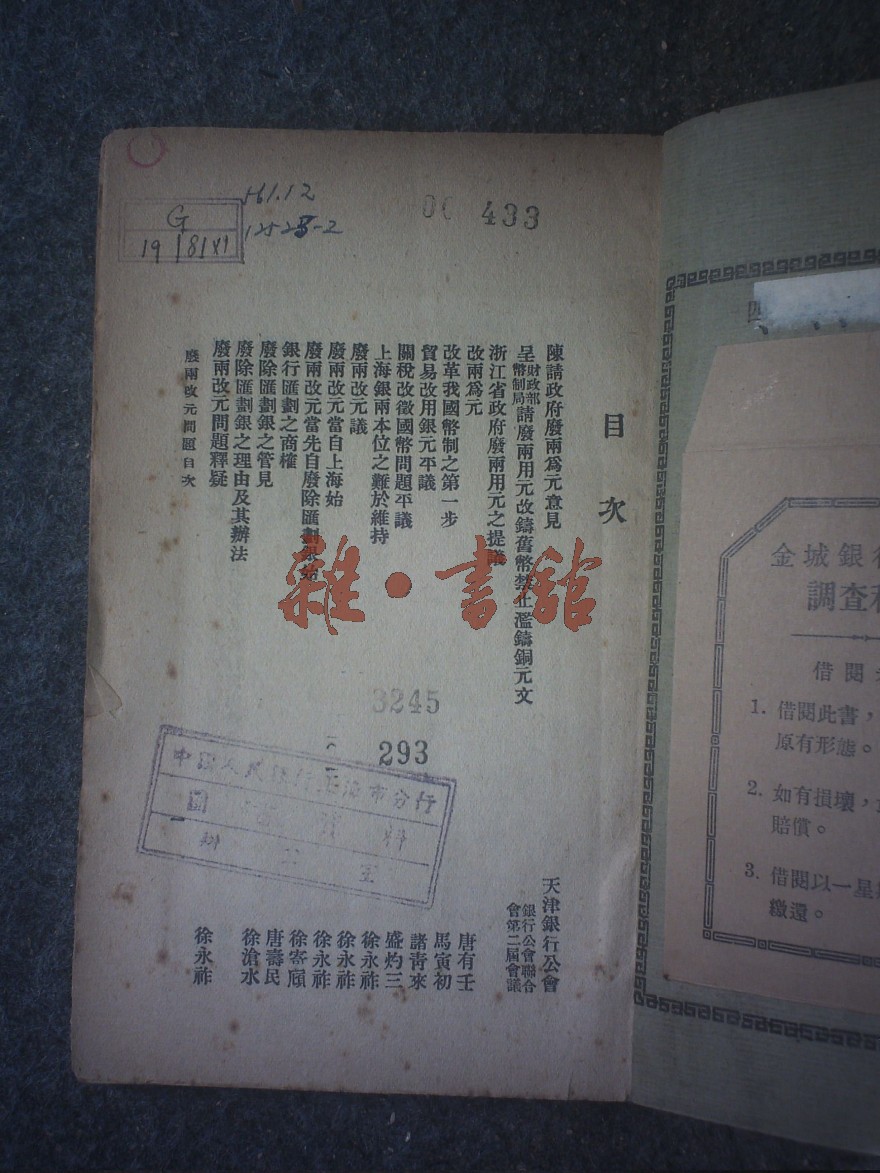 目次
陳請政府廢兩爲元意見 天津銀行公會
呈財政部幣制局請廢兩用元改鑄舊幣禁止濫鑄銅元文 銀行公會聯合會第二屆會議
浙江省政府廢兩用元之提議
改兩爲元 唐有壬
改革我國幣制之第一步 馬寅初
貿易改用銀元平議 諸青來
關稅改徵國幣問題平議 盛灼三
上海銀兩本位之難於維持 徐永祚
廢兩改元議 徐永祚
廢兩改元當自上海始 徐永祚
廢兩改元當先自廢除匯劃銀始 徐寄廎
銀行匯劃之商榷 唐壽民
廢除匯劃銀之管見 徐滄水
廢除匯劃銀之理由及其辦法
廢兩改元問題釋疑 徐永祚
廢兩改元問題目次
433
G
19
161.12
3245
293
中國人民銀行上海市分行
雜·書館
金城銀行
調查
借閱
1. 借閱此書，
原有形態。
2. 如有損壞，
賠償。
3. 借閱以一星
繳還。